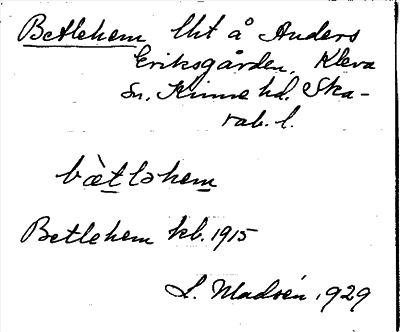 Betlehem lht å Anders
Eriksgården, Kleva
sn. Kinne hd. Ska-
rab. l.
bæ̀tləhem
Betlehem kb. 1915
L. Madsén, 1929